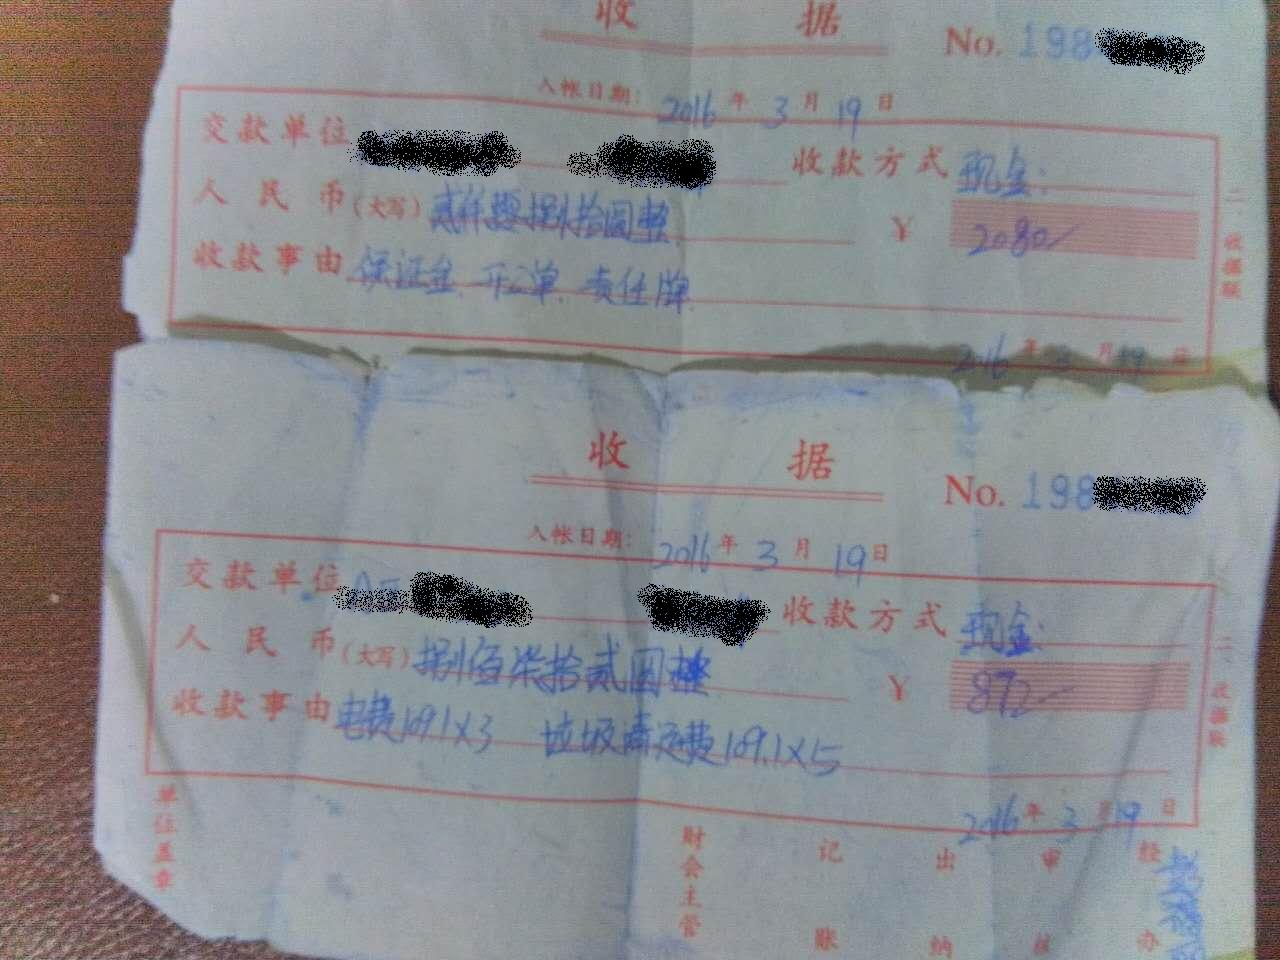 收 据
No. 198
入帐日期： 2016 年 3 月 19 日
交款单位 收款方式 现金：
人民币（大写） 贰仟零捌拾圆整 ￥ 2080/
收款事由 保证金、开工单、责任牌
2016 年 3 月 19 日
二、收据联
收 据
No. 198
入帐日期： 2016 年 3 月 19 日
交款单位 收款方式 现金：
人民币（大写） 捌佰柒拾贰圆整 ￥ 872/
收款事由 电费109.1×3 垃圾清运费109.1×5
2016 年 3 月 19 日
二、收据联
单位盖章 财会主管 记账 出纳 审核 经办